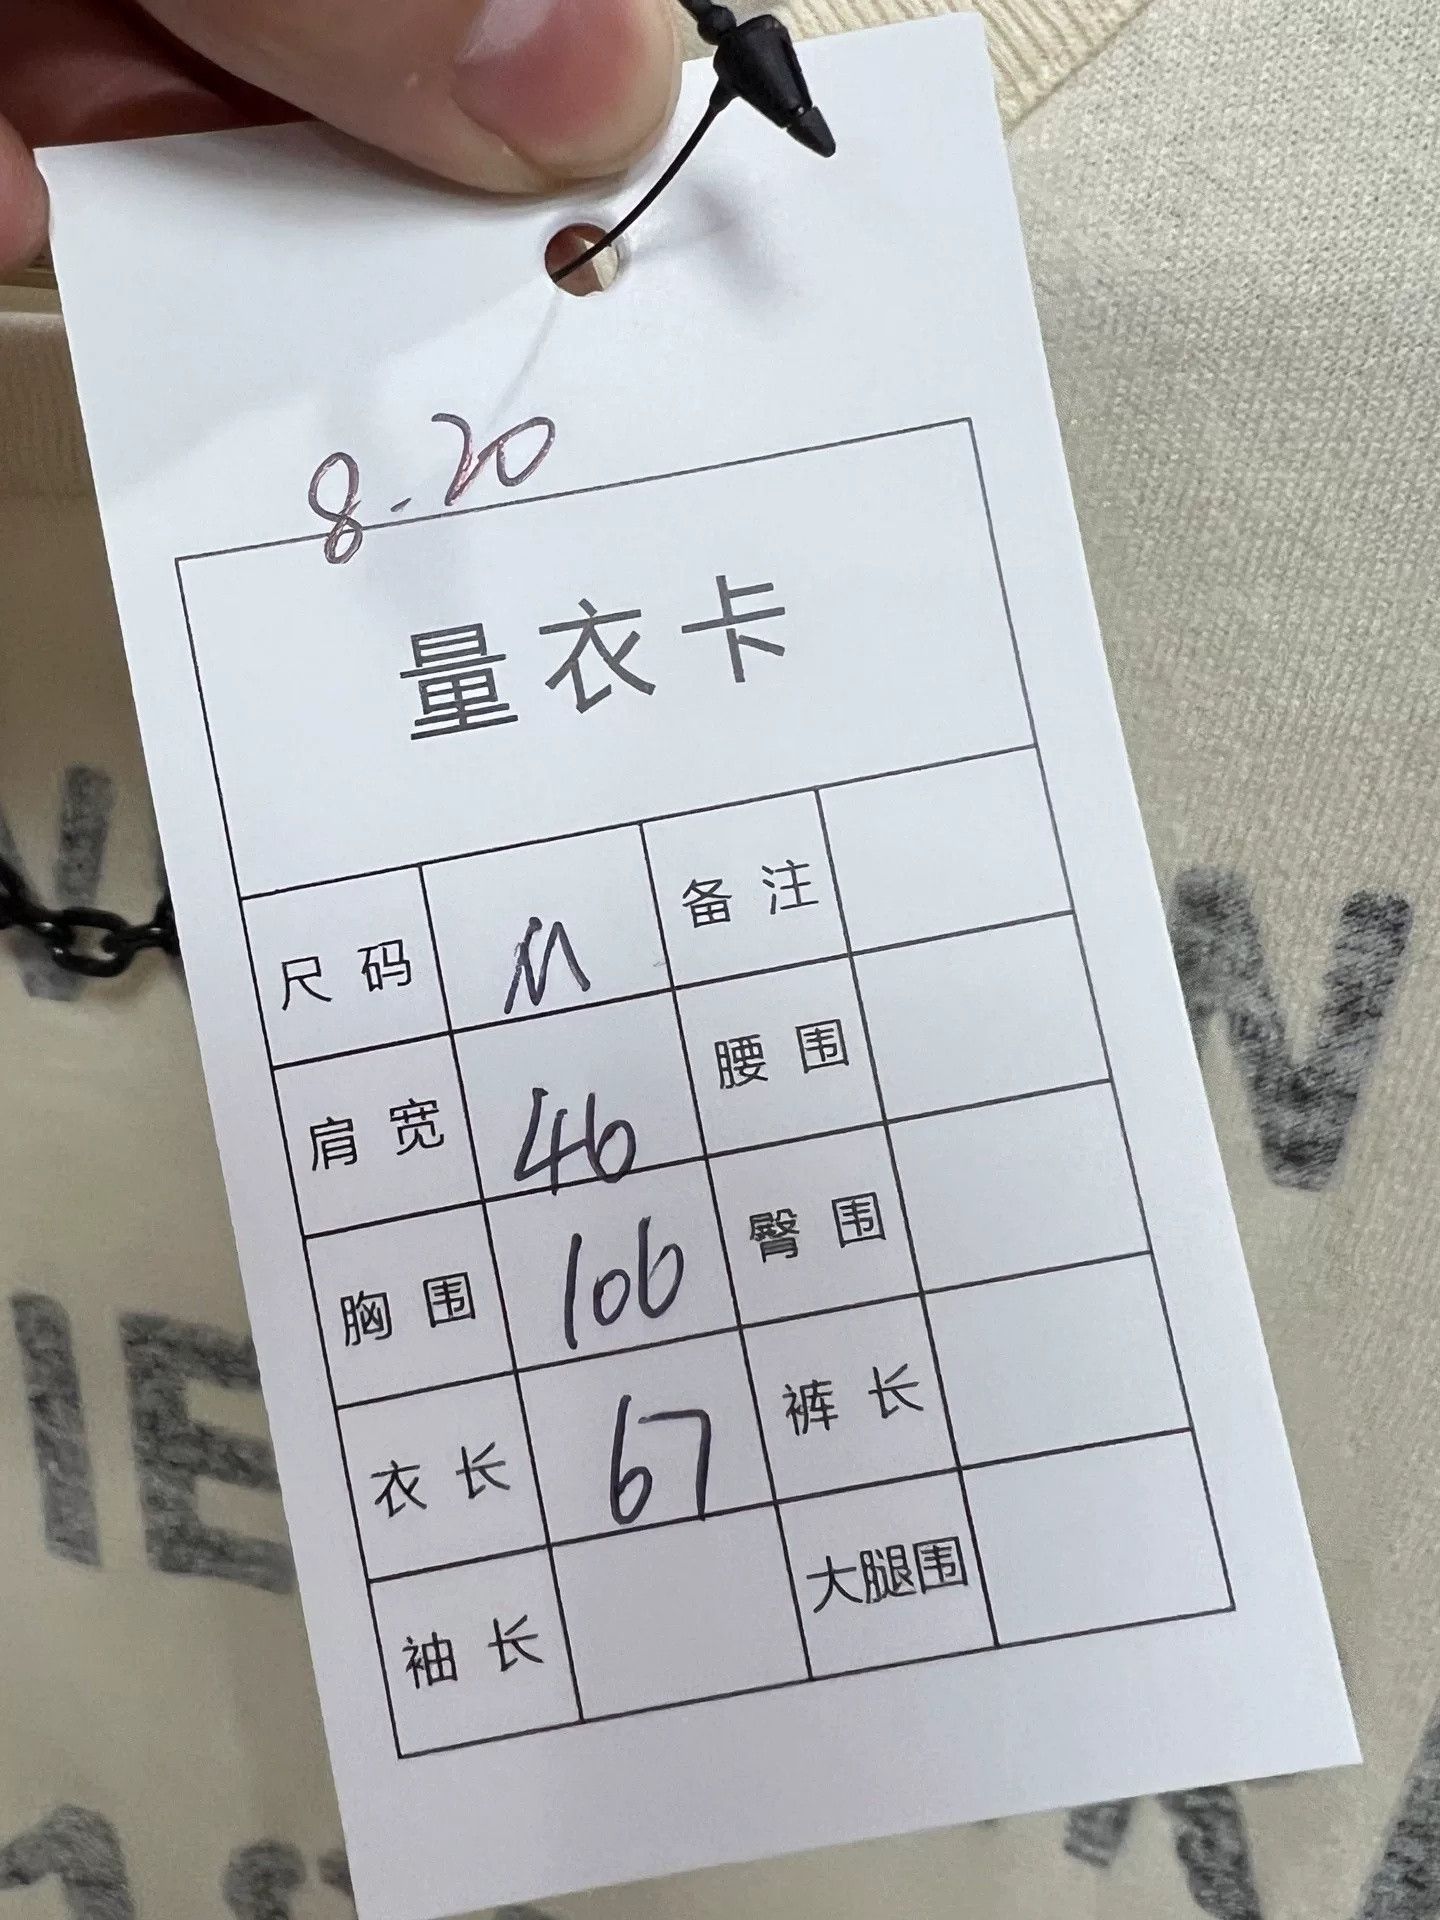 8.20
量衣卡
尺码 M 备注
肩宽 46 腰围
胸围 106 臀围
衣长 67 裤长
袖长 大腿围